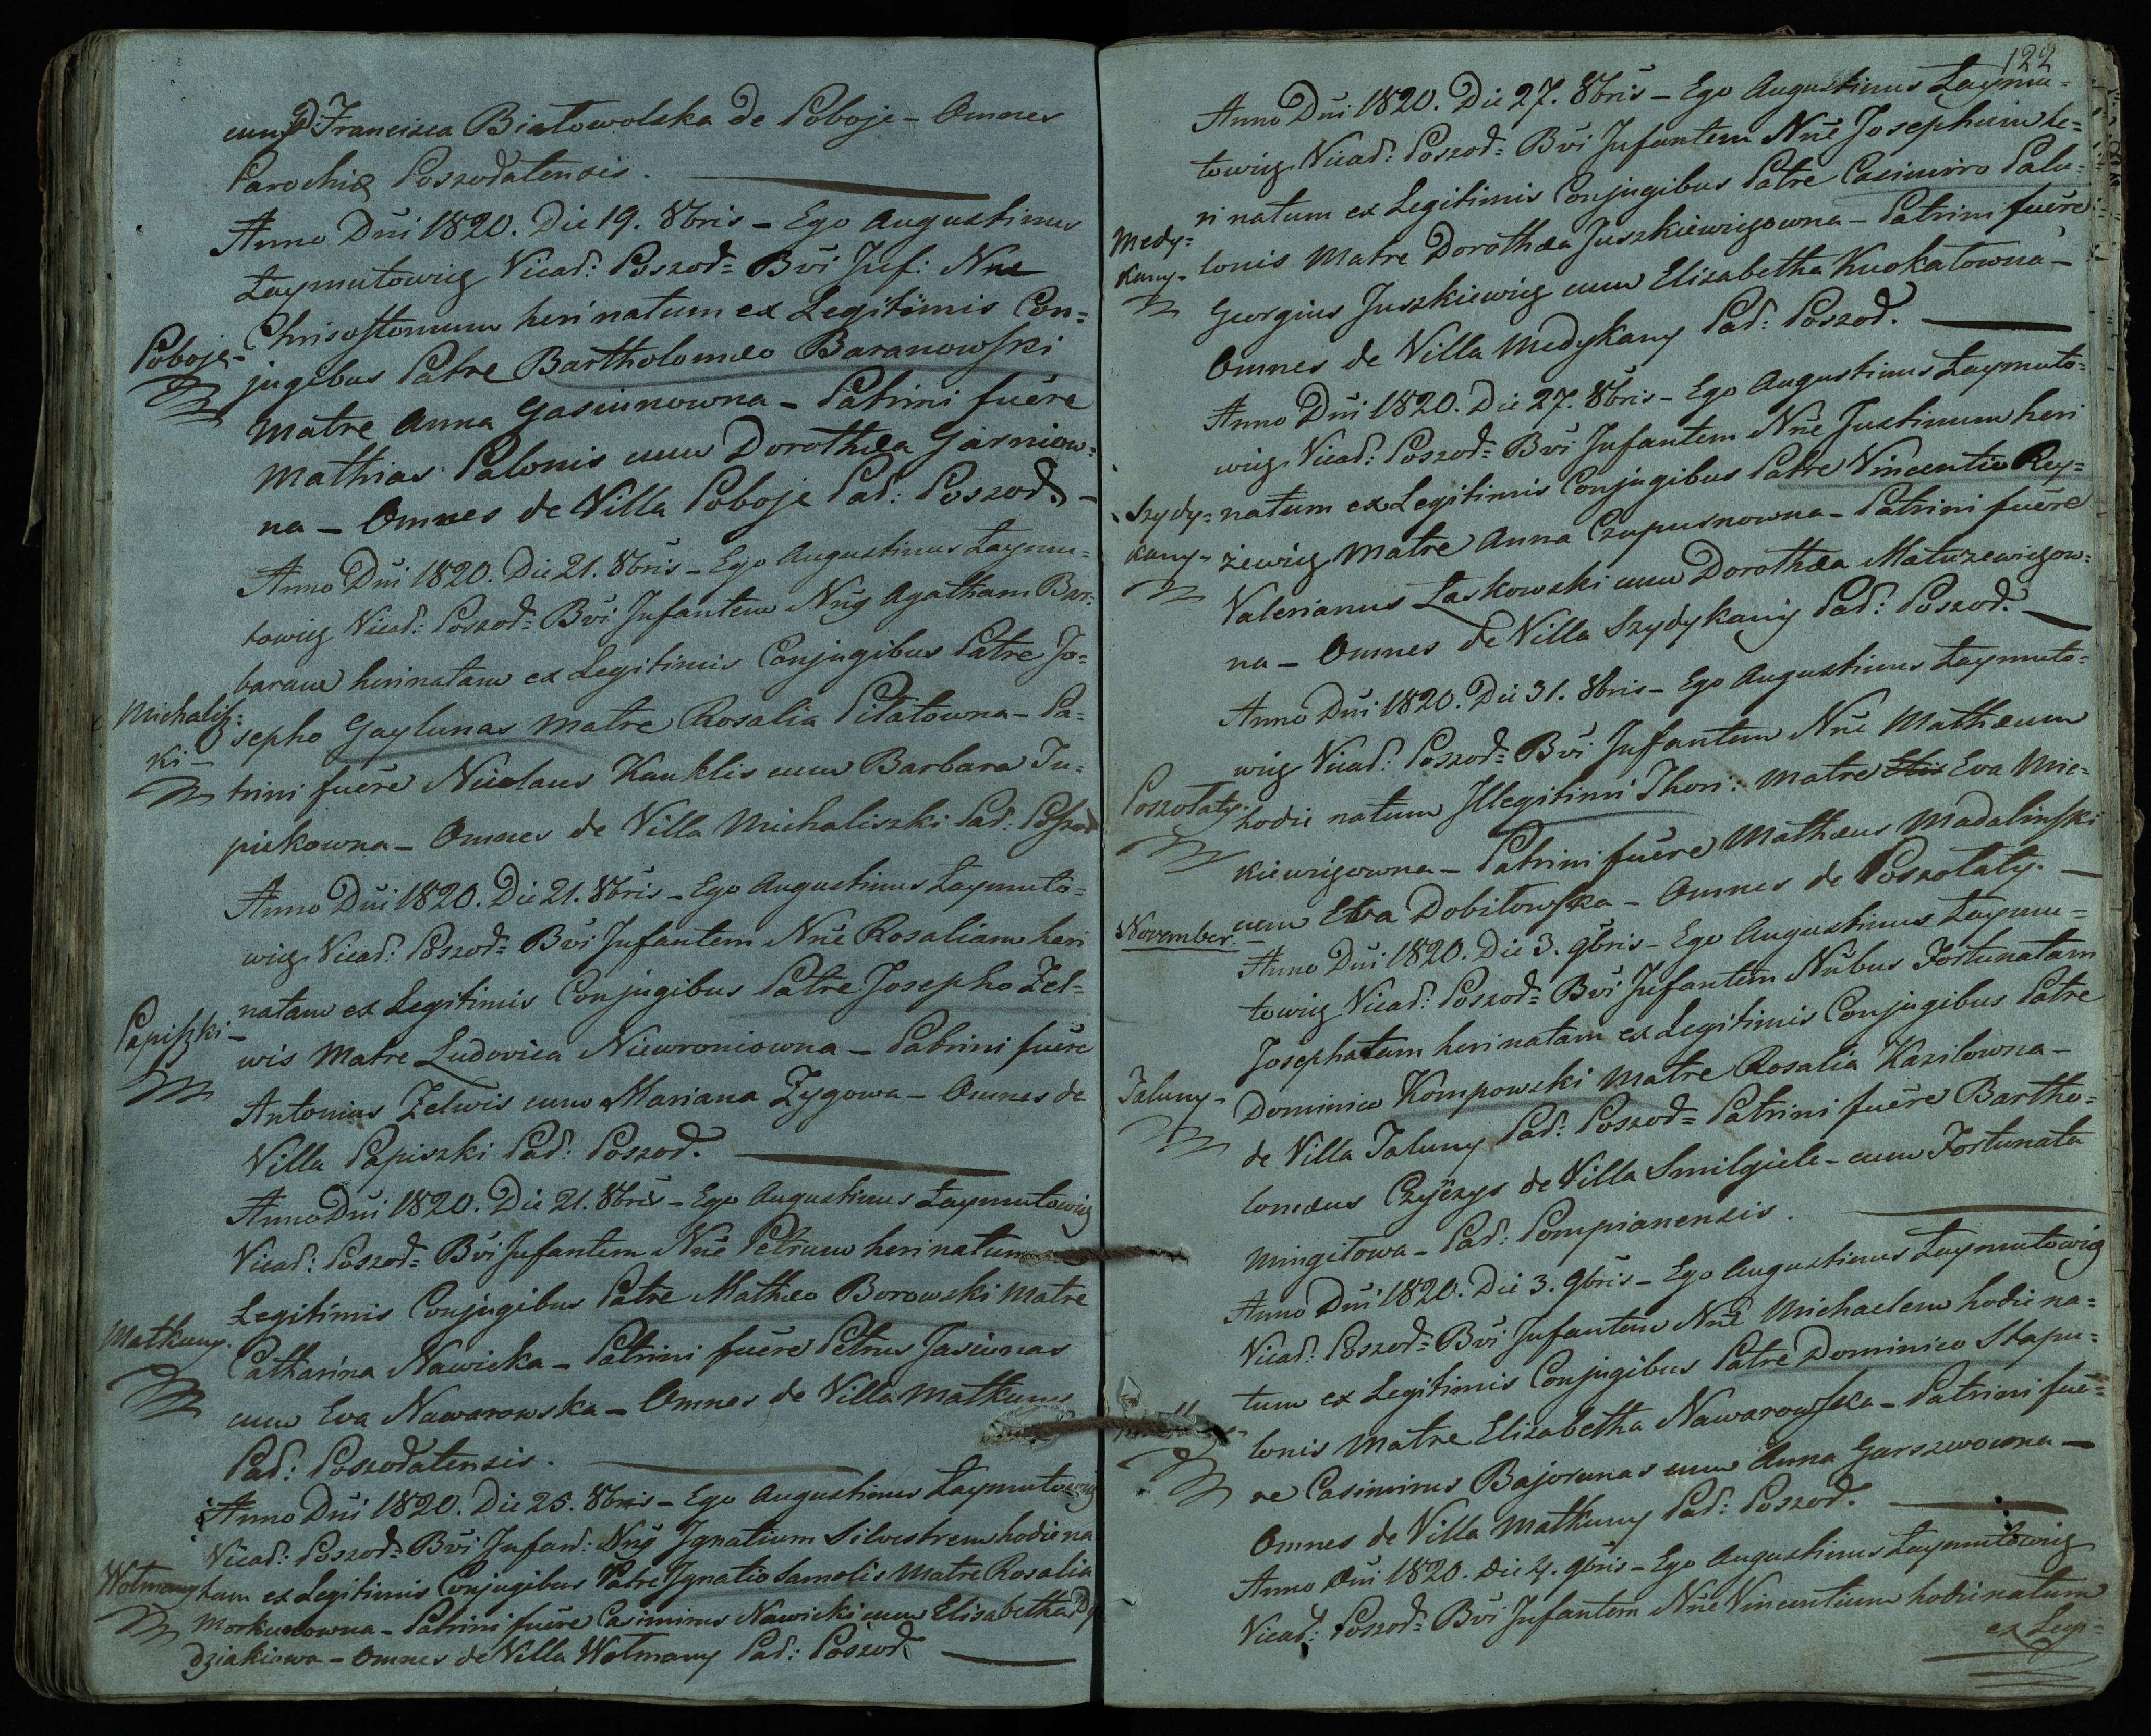 cum D Francisca Białowolska de Poboje – Omnes
Parochiæ Poszodatensis.
Anno Dñi 1820. Die 19. 8bris – Ego Augustinus
Łaymutowicz Vicað: Poszod= Bvi Inf: Nne
Poboje–
Chrisostomum heri natum ex Legitimis Con=
jugibus Patre Bartholomæo Baranowski
Matre Anna Gasiunowna – Patrini fuere
Mathias Palonis cum Dorothæa Garniow=
na – Omnes de Villa Poboje Pað: Poszod. –
Anno Dñi 1820. Die 21. 8bris – Ego Augustinus Łaymu=
towicz Vicað: Poszod= Bvi Infantem Nng Agatham Bar=
baram heri natam ex Legitimis Conjugibus Patre Jo=
Michalisz=
ki –
sepho Gaylunas Matre Rosalia Piłatowna – Pa=
trini fuere Nicolaus Kauklis cum Barbara Tu=
piekowna – Omnes de Villa Michaliszki Pað: Poszod
Anno Dñi 1820. Die 21. 8bris – Ego Augustinus Łaymuto=
wicz Vicað: Poszod= Bvi Infantem Nne Rosaliam heri
natam ex Legitimis Conjugibus Patre Josepho Żel=
Papiszki –
wis Matre Ludovica Niewroniowna – Patrini fuere
Antonius Żelwis cum Mariana Zygowa – Omnes de
Villa Papiszki Pað: Poszod.
Anno Dñi 1820. Die 21. 8bris – Ego Augustinus Łaymutowicz
Vicað: Poszod= Bvi Infantem Nne Petrum heri natum
Legitimis Conjugibus Patre Mathæo Borowski Matre
Matkuny.
Catharina Nawicka – Patrini fuere Petrus Jasiunas
cum Eva Nawarowska – Omnes de Villa Matkuny
Pað: Poszodatensis.
Anno Dñi 1820. Die 25. 8bris – Ego Augustinus Łaymutowicz
Vicað: Poszod= Bvi Infan: Nng Ignatium Silvestrem hodie na
Wołmany
tum ex Legitimis Conjugibus Patre Ignatio Samolis Matre Rosalia
Morkunowna – Patrini fuere Casimirus Nawicki cum Elisabetha Dy
dziakiowa – Omnes de Villa Wołmany Pað: Poszod.
122
Anno Dñi 1820. Die 27. 8bris – Ego Augustinus Łaymu=
towicz Vicað: Poszod= Bvi Infantem Nne Josephum he=
ri natum ex Legitimis Conjugibus Patre Casimiro Palu=
Medy=
kany –
lonis Matre Dorothæa Juszkiewiczowna – Patrini fuere
Georgius Juszkiewicz cum Elizabetha Kuokatowna –
Omnes de Villa Medykany Pað: Poszod.
Anno Dñi 1820. Die 27. 8bris – Ego Augustinus Łaymuto=
wicz Vicað: Poszod= Bvi Infantem Nne Justinum heri
Szydy=
kany –
natum ex Legitimis Conjugibus Patre Vincentio Rey=
żewicz Matre Anna Czapusnowna – Patrini fuere
Valerianus Łaskowski cum Dorothæa Matuzewiczow=
na – Omnes de Villa Szydykany Pað: Poszod. –
Anno Dñi 1820. Die 31. 8bris – Ego Augustinus Łaymuto=
wicz Vicað: Poszod= Bvi Infantem Nne Mathæum
Poszołaty.
hodie natum Illegitimi Thori: Matre Eva Mic=
kiewiczowna – Patrini fuere Mathæus Madalinski
cum Eva Dobiłowska – Omnes de Poszołaty. –
November.
Anno Dñi 1820. Die 3. 9bris – Ego Augustinus Łaymu=
towicz Vicað: Poszod= Bvi Infantem Nnbus Fortunatam
Josephatam heri natam ex Legitimis Conjugibus Patre
Jaluny –
Dominico Kompowski Matre Rosalia Kazilowna –
de Villa Jaluny Pað: Poszod= Patrini fuere Bartho=
lomæus Czyczys de Villa Smilgiele – cum Fortunata
Mingitowa – Pað: Pompianensis.
Anno Dñi 1820. Die 3. 9bris – Ego Augustinus Łaymutowicz
Vicað: Poszod= Bvi Infantem Nne Michaelem hodie na=
tum ex Legitimis Conjugibus Patre Dominico Stapu=
lonis Matre Elizabetha Nawarowska – Patrini fue=
re Casimirus Bajorunas cum Anna Garszwowna –
Omnes de Villa Matkuny Pað: Poszod.
Anno Dñi 1820. Die 4. 9bris – Ego Augustinus Łaymutowicz
Vicað: Poszod= Bvi Infantem Nne Vincentium hodie natum
ex Legi=